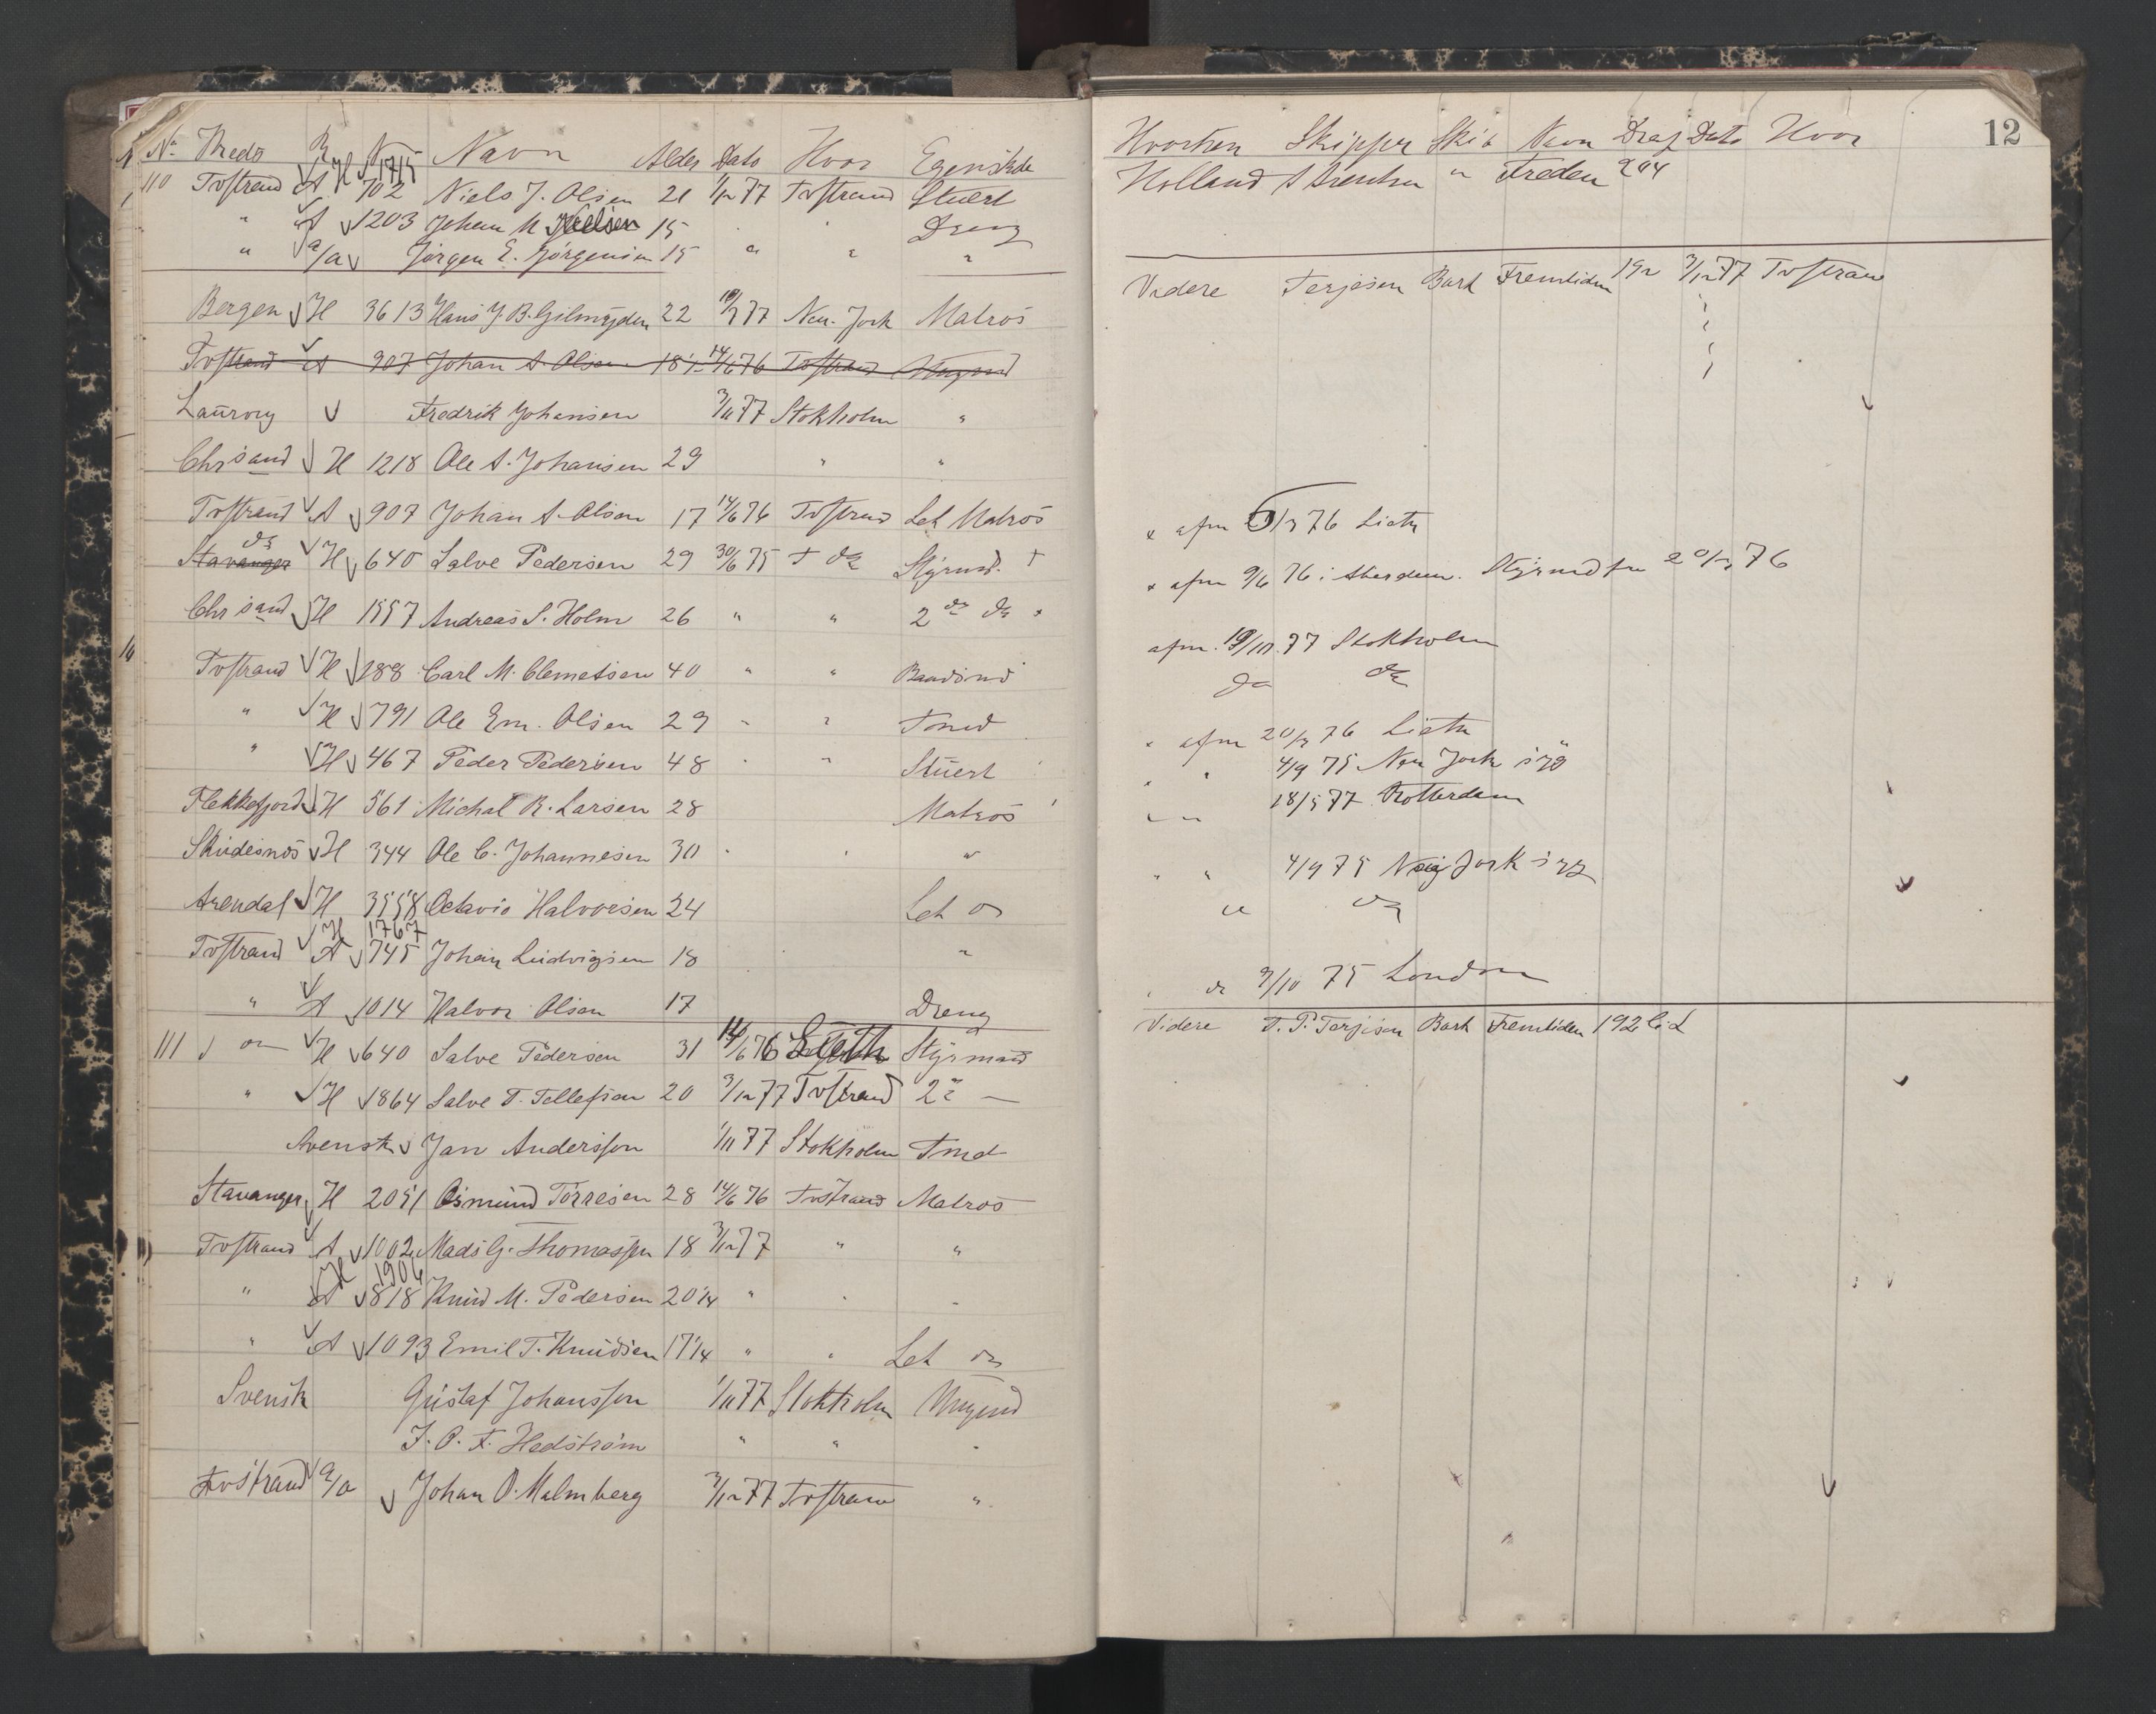 No Kreds R No Navn Alder Dato Hvor Egenskab
H 1715
110 Tvstrand A 702 Niels J. Olsen 21 1/12 77 Tvstrand Stuert
" A 1203 Johan N Nielsen 15 " " Dreng
" a/a Jørgen E. Jørgensen 15 " " "
Bergen H 3613 Hans J. B. Gilmyden 22 77 New-Jork Matros
Tvstrand A 907 Johan A. Olsen 18 14/6 76 Tvstrand Ungmd
Laurvig Fredrik Johansen 3/11 77 Stokholm "
Chrsand H 1218 Ole A. Johansen 29 " "
Tvstrand A 907 Johan A. Olsen 17 14/6 76 Tvstrand Let Matros
do
Stavanger H 640 Salve Pedersen 29 30/6 75 + do Styrmd. +
Chrsand H 1557 Andreas S. Holm 26 " " 2den do
Tvstrand H 188 Carl M. Clemetsen 40 " " Baadsmd
" H 791 Ole Em. Olsen 29 " " Tmd
" H 467 Peder Pedersen 48 " " Stuert
Flekkefjord H 561 Michal R. Larsen 28 Matros
Skudesnæs H 344 Ole C. Johannesen 30 " " "
Arendal H 3558 Octavio Halvorsen 24 Let do
H 1767
Tvstrand A 745 Johan Ludvigsen 18 "
" A 1014 Halvor Olsen 17 Dreng
111 do H 640 Salve Pedersen 31 14/6 76 Lieth Styrmand
" H 1864 Salve T. Tellefsen 20 3/12 77 Tvstrand 2den —
Svensk Jan Andersson 1/11 77 Stokholm Tmd
Stavanger H 2051 Osmund Torresen 28 14/6 76 Tvstrand Matros
Tvstrand A 1002 Mads G. Thomassen 18 3/12 77 " "
H 1904
" A 818 Knud M. Pedersen 20 1/4 " " "
" A 1093 Emil T. Knudsen 17 1/4 " " Let do
Svensk Gustaf Johansson 1/11 77 Stokholm Ungmd
J. O. F. Hedström " " "
Tvstrand a/a Johan O. Malmberg 3/12 77 Tvstrand "
12
Hvorhen Skipper Skib Navn Dræg Dato Hvor
Holland " Freden 204
Videre Terjesen Bark Fremtiden 192 3/12 77 Tvstrand
x afm 76 Lieth
x afm 9/6 76 i Aberdeen. Styrmd fra 20/ 76
afm. 19/10. 77 Stokholm
do do
" afm 20/ 76 Lieth
" " 4/9 75 New Jork
" " 18/5 77 Rotterdam
" " 4/9 75 Jork
" do
" do 9/10 75 London
Videre T. P. Terjesen Bark Fremtiden 192 C. L